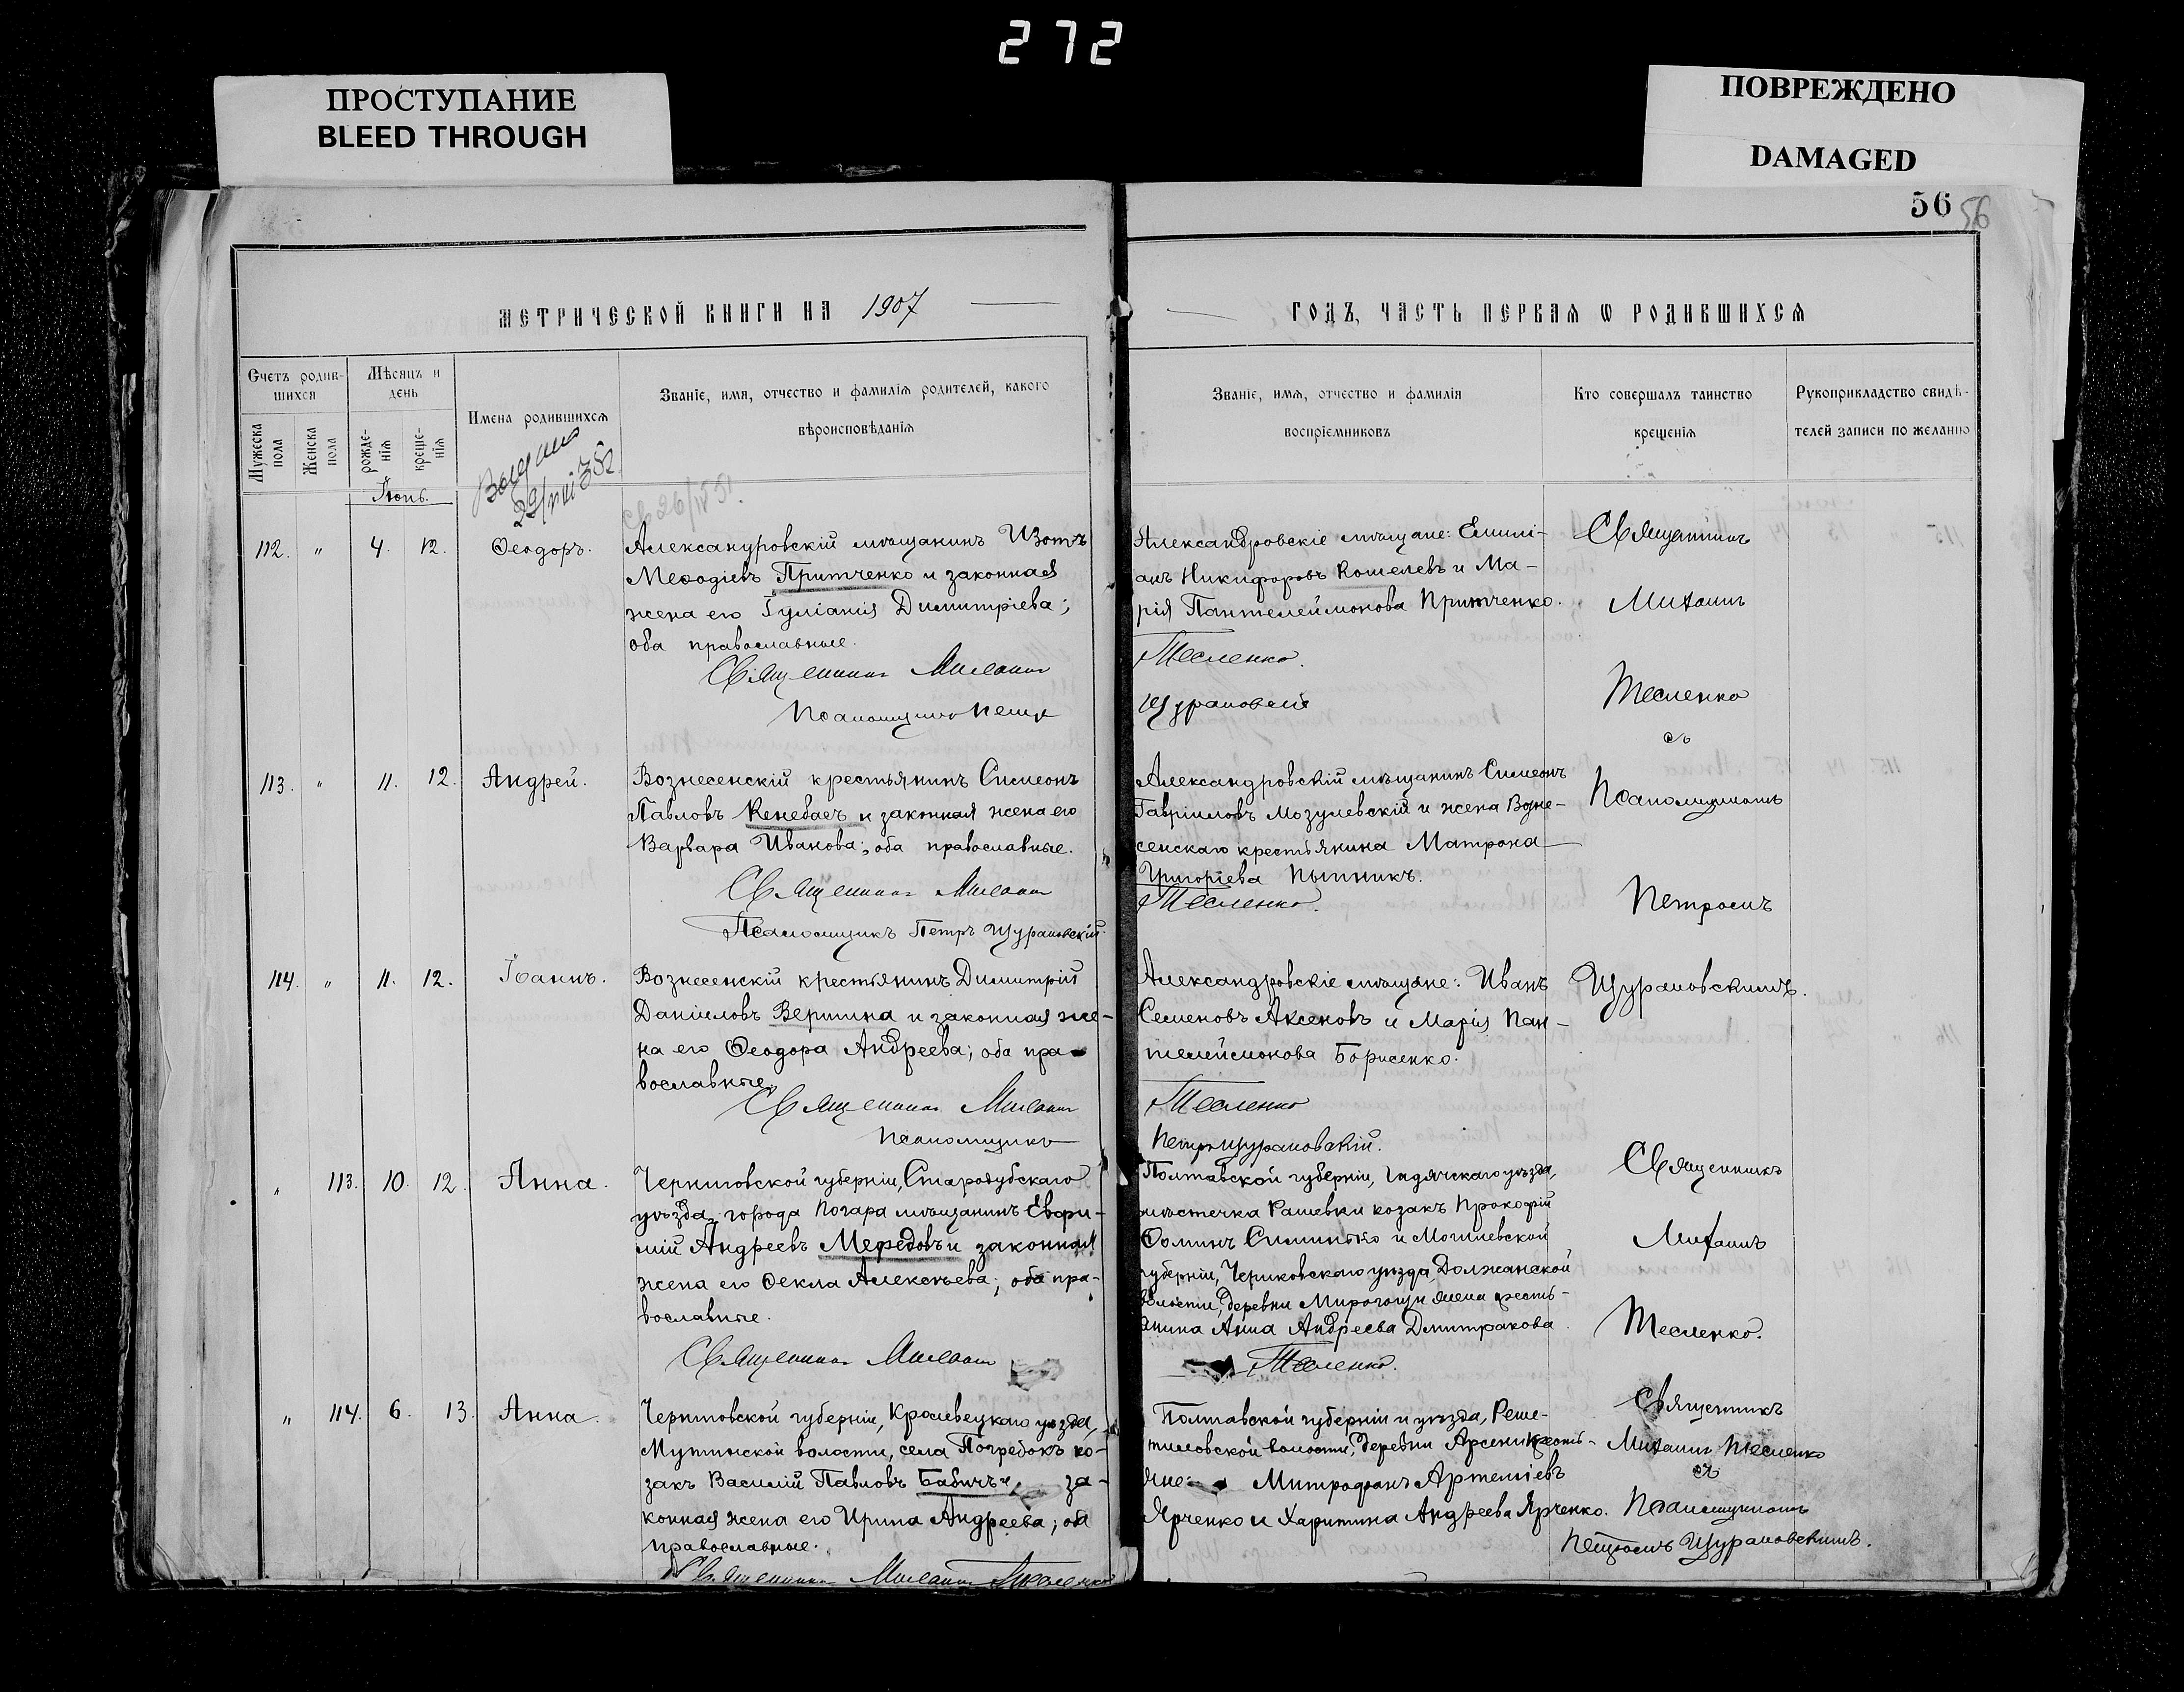 272
ПРОСТУПАНИЕ
BLEED THROUGH
ПОВРЕЖДЕНО
DAMAGED
56 56
МЕТРИЧЕСКОЙ КНИГИ НА 1907
ГОДЪ, ЧАСТЬ ПЕРВАЯ Ѡ РОДИВШИХСЯ
Счетъ родив-
шихся
Мужеска пола
Женска пола
Мѣсяцъ и
день
рожде-
нія
креще-
нія
Имена родившихся
Званіе, имя, отчество и фамилія родителей, какого
вѣроисповѣданія
Званіе, имя, отчество и фамилія
воспріемниковъ
Кто совершалъ таинство
крещенія
Рукоприкладство свидѣ-
телей записи по желанію
Іюнь.
112. " 4. 12. Ѳеодоръ.
Александровскій мѣщанинъ Изотъ
Меѳодіевъ Притченко и законная
жена его Іуліанія Димитріева;
оба православные.
Священникъ Михаилъ
Псаломщикъ Петръ
Александровскіе мѣщане: Емилі-
анъ Никифоровъ Кошелевъ и Ма-
рія Пантелеймонова Притченко.
Тесленко.
Щурановскій
Священникъ
Михаилъ
Тесленко
съ
113. " 11. 12. Андрей.
Вознесенскій крестьянинъ Симеонъ
Павловъ Кенебаеъ и законная жена его
Варвара Иванова; оба православные.
Священникъ Михаилъ
Псаломщикъ Петръ Щурановскій
Александровскій мѣщанинъ Симеонъ
Гавріиловъ Мозулевскій и жена Возне-
сенскаго крестьянина Матрона
Григоріева Пытникъ.
Тесленко.
Псаломщикомъ
Петромъ
114. " 11. 12. Іоаннъ.
Вознесенскій крестьянинъ Димитрій
Даніиловъ Вершина и законная же-
на его Ѳеодора Андреева; оба пра-
вославные.
Священникъ Михаилъ
Псаломщикъ
Александровскіе мѣщане: Иванъ
Семеновъ Аксеновъ и Марія Пан-
телеймонова Борисенко.
Тесленко
Петръ Щурановскій.
Щурановскимъ.
" 113. 10. 12. Анна.
Черниговской губерніи, Стародубскаго
уѣзда, города Погара мѣщанинъ Евфи-
мій Андреевъ Мефедовъ и законная
жена его Ѳекла Алексѣева; оба пра-
вославные.
Священникъ Михаилъ
Полтавской губерніи, Гадячскаго уѣзда,
мѣстечка Рашевки козакъ Прокофій
Ѳоминъ и Могилевской
губерніи, Чериковскаго уѣзда, Должанской
волости, деревни жена кресть-
янина Анна Андреева Дмитракова.
Тесленко.
Священникъ
Михаилъ
Тесленко.
" 114. 6. 13. Анна.
Черниговской губерніи, Кролевецкаго уѣзда,
Мутинской волости, села Погребокъ ко-
закъ Василій Павловъ Бабичъ и за-
конная жена его Ирина Андреева; оба
православные.
Священникъ Михаилъ Тесленко
Полтавской губерніи и уѣзда, Реше-
тиловской волости, деревни кресть-
яне: Митрофанъ Артеміевъ
Ярченко и Харитина Андреева Ярченко.
Священникъ
Михаилъ Тесленко
съ
Псаломщикомъ
Петромъ Щурановскимъ.